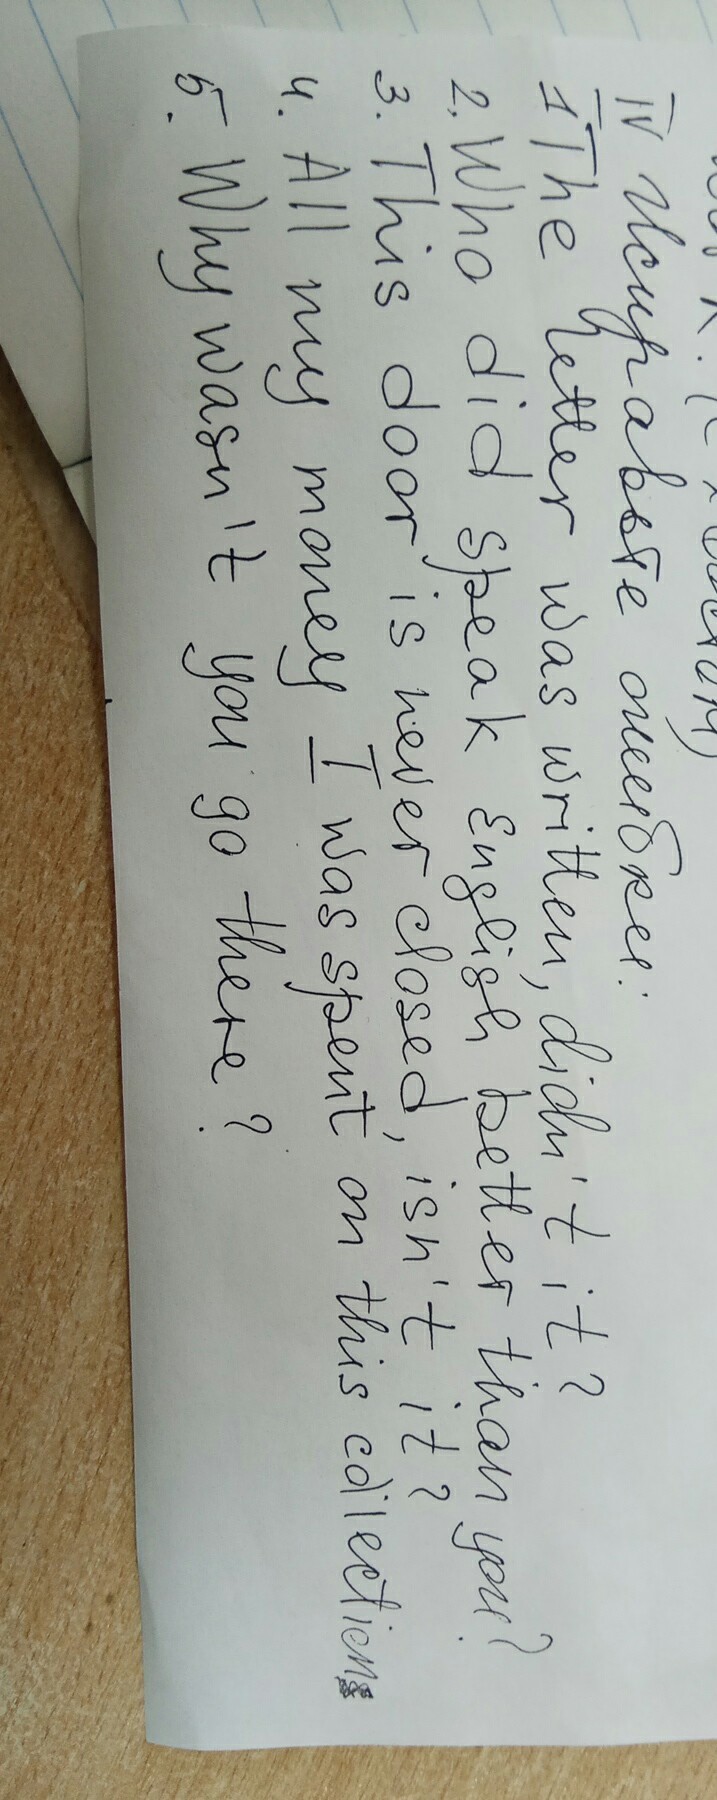 IV Исправьте ошибки:
1 The letter was written, didn't it?
2. Who did speak English better than you?
3. This door is never closed, isn't it?
4. All my money I was spent on this collection
5. Why wasn't you go there?